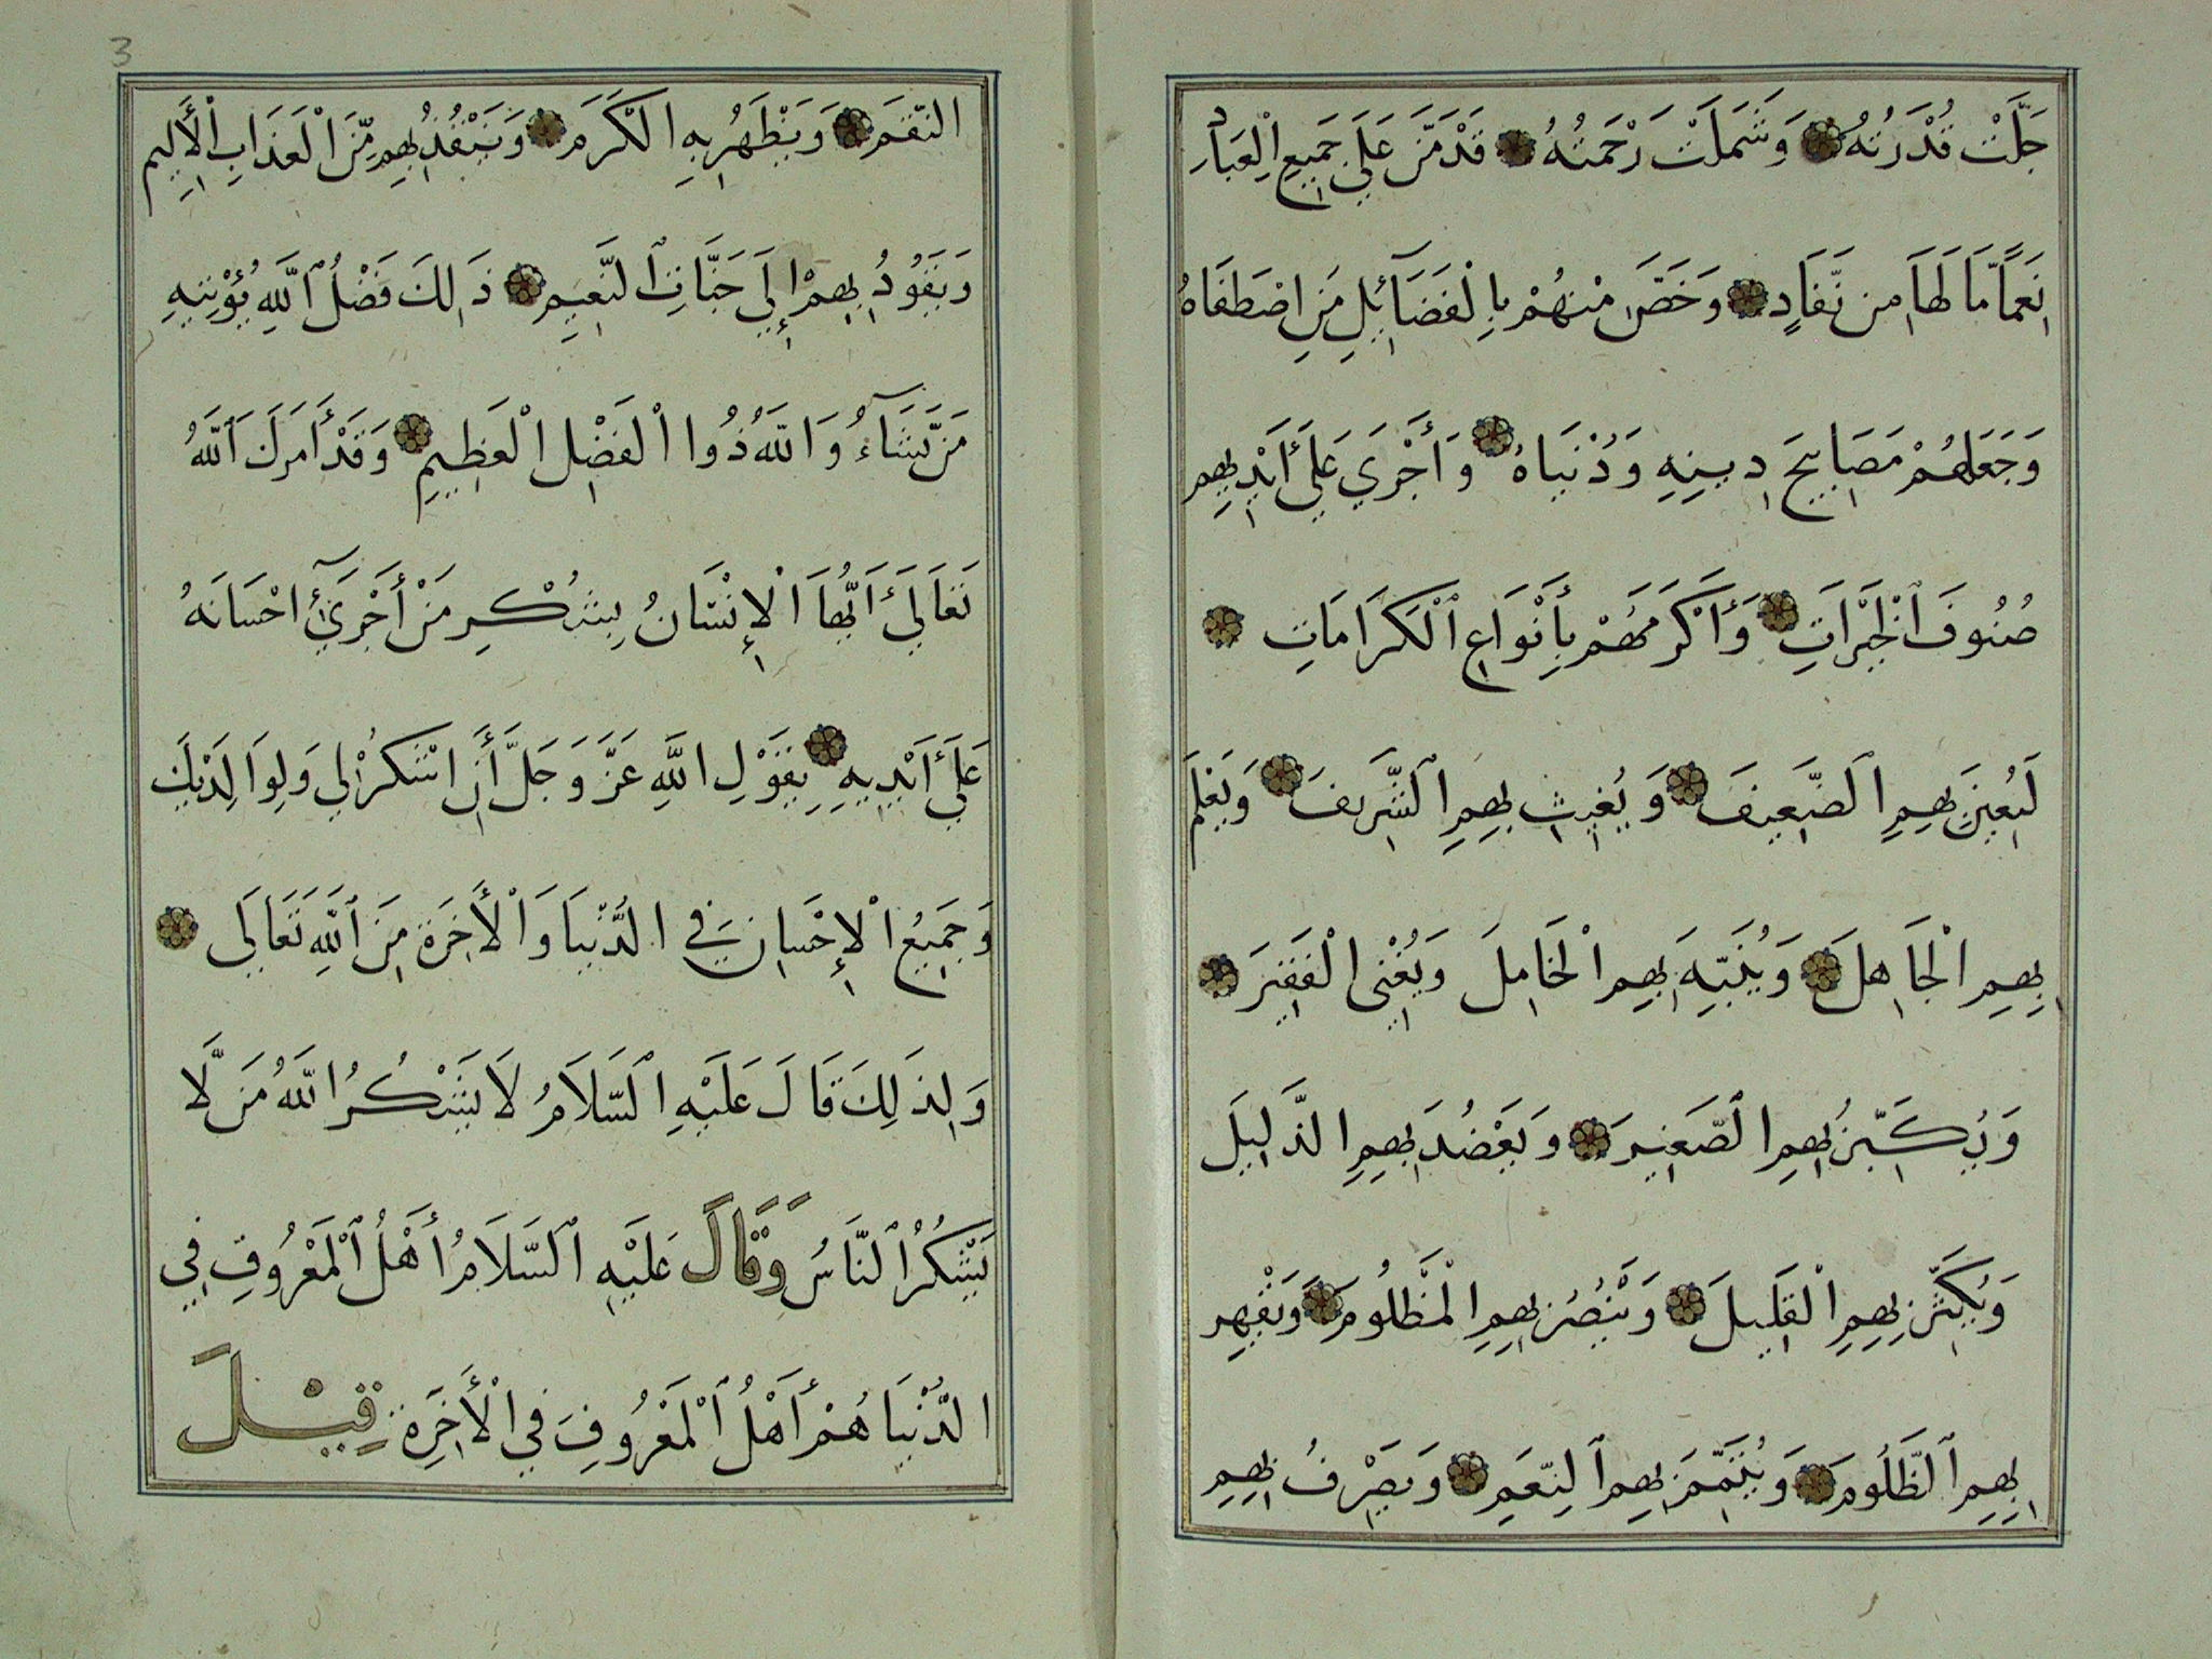 جَلَّتْ قُدْرَتُهُ وَشَمَلَتْ رَحْمَتُهُ قَدْمَنَّ عَلَى جَمِيعِ الْعِبَادِ
نِعَمًا مَّا لَهَا مِن نَّفَادٍ وَخَصَّ مِنْهُمْ بِالْفَضَآئِلِ مَنِ اصْطَفَاهُ
وَجَعَلَهُمْ مَصَابِيحَ دِينِهِ وَدُنْيَاهُ وَأَجْرَي عَلَىٰ أَيْدِيهِم
صُنُوفَ ٱلْخَيْرَاتِ وَأَكْرَمَهُمْ بِأَنْوَاعِ ٱلْكَرَامَاتِ
لَيُعِينَ بِهِمِ ٱلضَّعِيفَ وَيُغِيثَ بِهِمِ ٱلشَّرِيفَ وَيُعْلِمَ
بِهِمِ الْجَاهِلَ وَيُنَبِّهَ بِهِمِ الْخَامِلَ وَيُغْنِي الْفَقِيرَ
وَيُكَبِّرَ بِهِمِ الصَّغِيرَ وَيَعْضُدَ بِهِمِ الذَّلِيلَ
وَيُكَثِّرَ بِهِمِ الْقَلِيلَ وَيَنْصُرَ بِهِمِ الْمَظْلُومَ وَيَقْهِر
بِهِمِ ٱلظَّلُومَ وَيُتَمِّمَ بِهِمِ ٱلنِّعَمِ وَيَصْرِفُ بِهِمِ
النِّقَمَ وَيَظْهَرُ بِهِ الْكَرَمَ وَيُنْقِذُ بِهِم مِّنَ الْعَذَابِ الْأَلِيمِ
وَيَقُودُ بِهِمْ إِلَي جَنَّاتِ ٱلنَّعِيمِ ذَٰلِكَ فَضْلُ ٱللَّهِ يُؤْتِيهِ
مَن يَّشَآءُ وَاللهُ ذُوا الْفَضْلِ الْعَظِيمِ وَقَدْ أَمَرَكَ ٱللَّهُ
تَعَالَيٰ أَيُّهَا الْإِنْسَانُ بِشُكْرِ مَنْ أَجْرَيٰٓ احْسَانَهُ
عَلَيٰ أَيْدِيهِ بِقَوْلِ اللَّهِ عَزَّ وَجَلَّ أَنِ اشْكُرْ لِي وَلِوَالِدَيْكَ
وَجَمِيعُ الْإِحْسَانِ فِي الدُّنْيَا وَالْأَخِرَةِ مِنَ ٱللَّهِ تَعَالَي
وَلِذَلِكَ قَالَ عَلَيْهِ السَّلَامُ لَا يَشْكُرُ اللهُ مَن لَّا
يَشْكُرُ ٱلنَّاسُ وَقَالَ عَلَيْهِ ٱلسَّلَامُ أَهْلُ ٱلْمَعْرُوفِ فِي
الدُّنْيَا هُمْ أَهْلُ ٱلْمَعْرُوفِ فِي الْأَخِرَةِ قِيْلَ
3